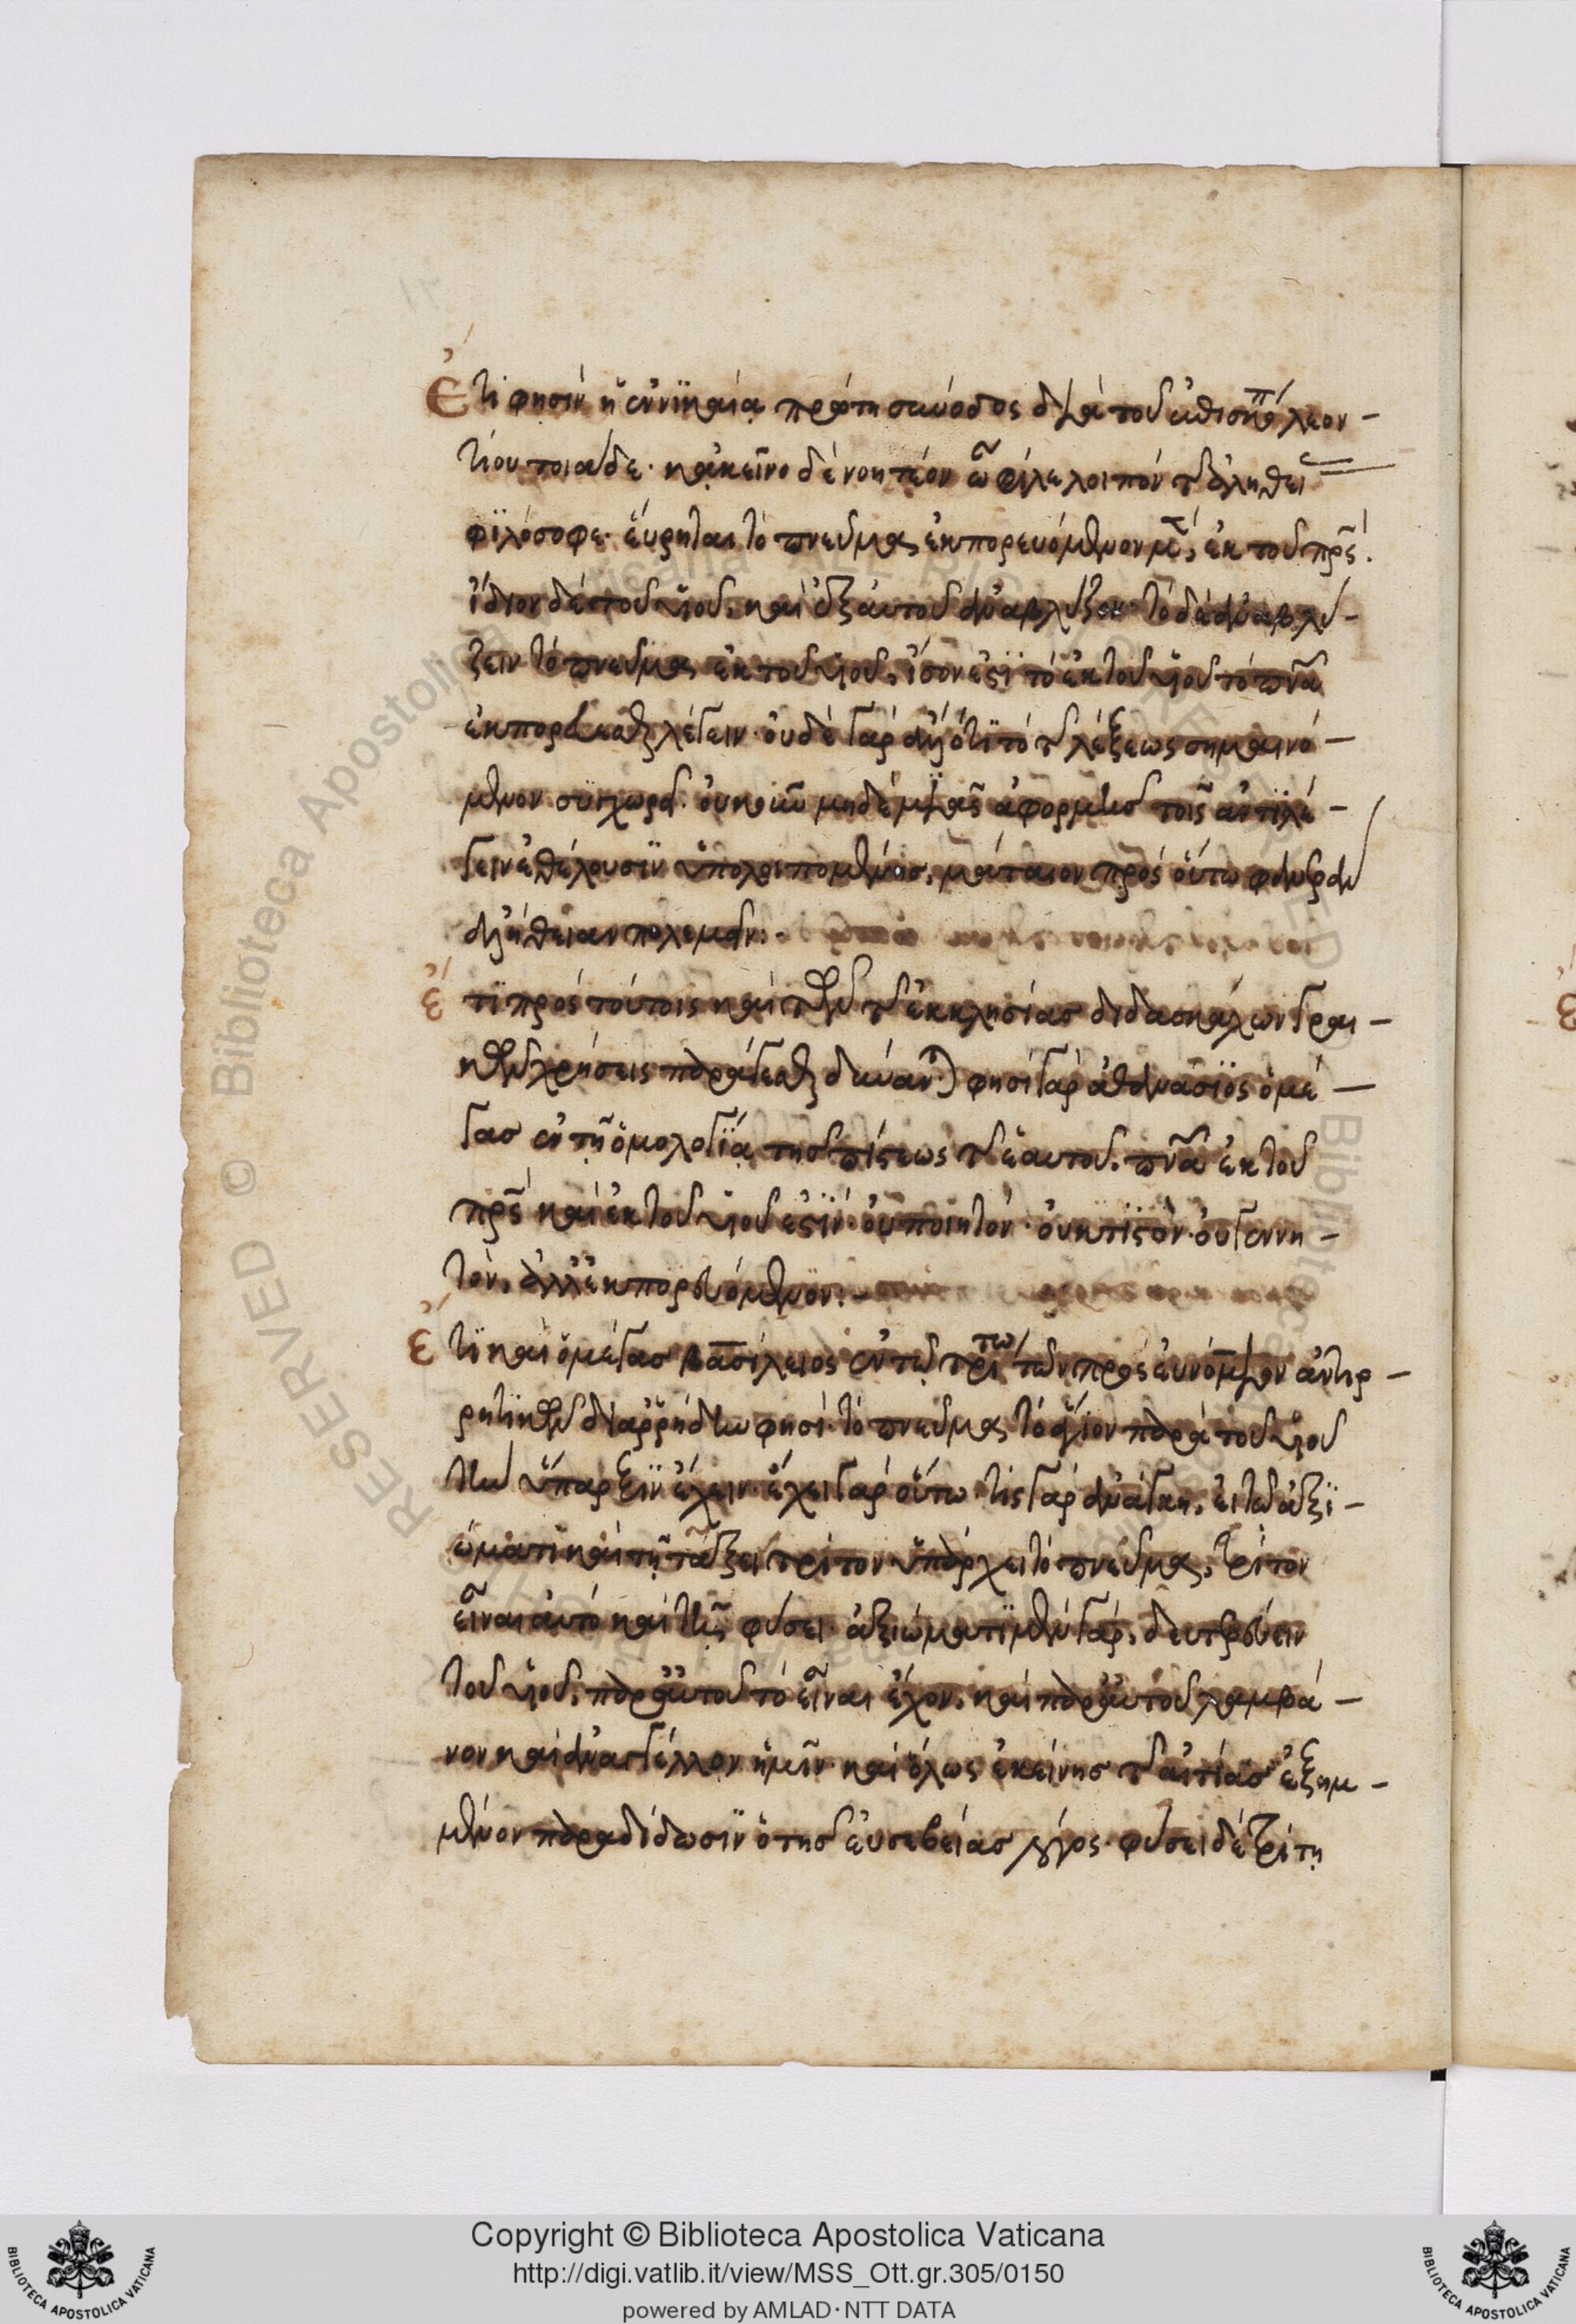 Ἔτι φησὶν ἡ ἐν νικαίᾳ πρώτη σύνοδος διὰ τοῦ ἐπισκόπου λεον-
τίου τοιάδε· κἀκεῖνο δὲ νοητέον ὦ φίλε λοιπὸν τῆς ἀληθείας
φιλόσοφε· εὕρηται τὸ πνεῦμα, ἐκπορευόμενον μὲν ἐκ τοῦ πρς·
ἴδιον δὲ τοῦ υἱοῦ, καὶ ἐξ αὐτοῦ ἀναβλύζον· τὸ δὲ ἀναβλύ-
ζειν τὸ πνεῦμα ἐκ τοῦ υἱοῦ, ἴσον ἐστὶ τὸ ἐκ τοῦ υἱοῦ τὸ πνα
ἐκπορεύεσθαι λέγειν· οὐδὲ γὰρ ἄλλο τι τὸ τῆς λέξεως σημαινό-
μενον συγχωρεῖ· οὐκοῦν μηδὲ μιᾶς ἀφορμῆς τοῖς ἀντιλέ-
γειν ἐθέλουσιν ὑπολειπομένης, μάταιον πρὸς οὕτω φανερὰν
ἀλήθειαν πολεμεῖν:-
ἔτι πρὸς τούτοις καὶ τῶν τῆς ἐκκλησίας διδασκάλων γραι-
κῶν χρήσεις φησὶ γὰρ ἀθανάσιος ὁ μέ-
γας ἐν τῇ ὁμολογίᾳ τῆς πίστεως τῆς ἑαυτοῦ. πνα ἐκ τοῦ
πρς καὶ ἐκ τοῦ υἱοῦ ἐστίν· οὐ ποιητόν· οὐ κτιστόν· οὐ γεννη-
τόν, ἀλλ' ἐκπορευόμενον:-
ἔτι καὶ ὁ μέγας βασίλειος ἐν τῷ τρίτῳ τῶν πρὸς εὐνόμιον ἀντιρ-
ρητικῶν διαρρήδην φησί· τὸ πνεῦμα τὸ ἅγιον παρὰ τοῦ υἱοῦ
τὴν ὕπαρξιν ἔχειν· ἔχει γὰρ οὕτω· τίς γὰρ ἀνάγκη, εἰ τῷ ἀξι-
ώματι καὶ τῇ τάξει τρίτον ὑπάρχει τὸ πνεῦμα, τρίτον
εἶναι αὐτὸ καὶ τῇ φύσει· ἀξιώματι μὲν γὰρ, δευτερεύειν
τοῦ υἱοῦ, παρ' αὐτοῦ τὸ εἶναι ἔχον, καὶ παρ' αὐτοῦ λαμβά-
νον καὶ ἀναγγέλλον ἡμῖν· καὶ ὅλως ἐκείνης τῆς αἰτίας ἐξημ-
μένον παραδίδωσιν ὁ τῆς εὐσεβείας λόγος· φύσει δὲ τρίτῃ
Copyright © Biblioteca Apostolica Vaticana
http://digi.vatlib.it/view/MSS_Ott.gr.305/0150
powered by AMLAD·NTT DATA